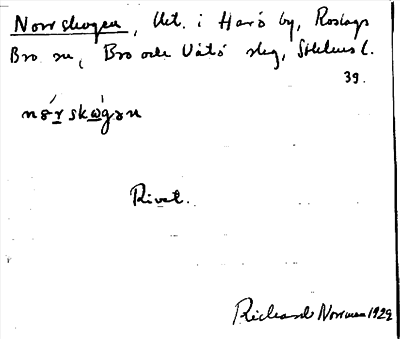 Norrskogen, Ut. i Harö by, Roslags
Bro sn, Bro och Vätö slg, Sthlms l.
39.
nǝ́r̲ skώ̲gǝn
Rivet.
Richard Norrman 1929